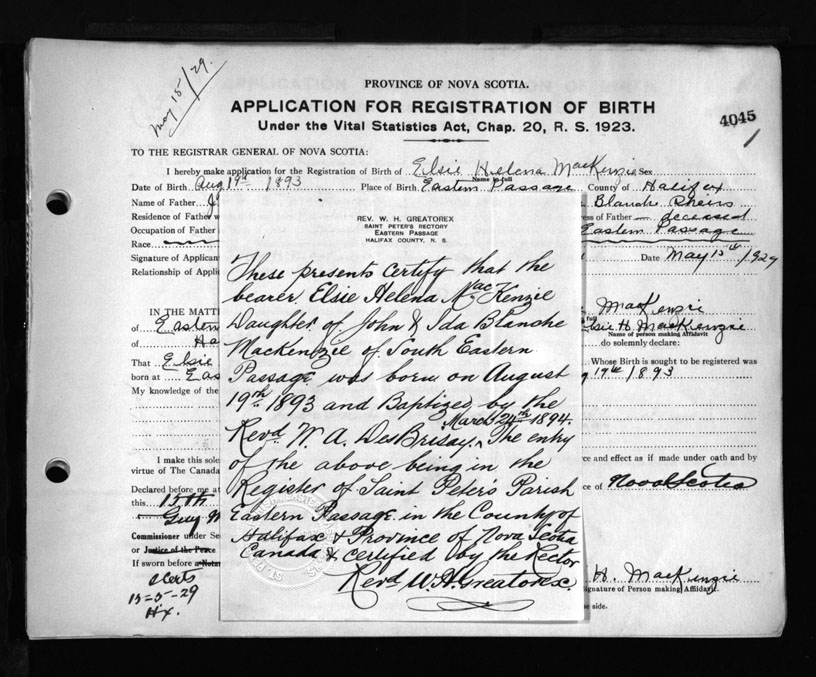 May 15/29.
PROVINCE OF NOVA SCOTIA.
APPLICATION FOR REGISTRATION OF BIRTH
Under the Vital Statistics Act, Chap. 20, R. S. 1923.
4045
1
TO THE REGISTRAR GENERAL OF NOVA SCOTIA:
I hereby make application for the Registration of Birth of Elsie Helena MacKenzie Sex
Name in full
Date of Birth Aug 19th 1893 Place of Birth Eastern Passage County of Halifax
Name of Father Blanch
Residence of Father ess of Father — deceased
Occupation of Father Eastern Passage
Race
Signature of Applican Date May 15th 1929
Relationship of Appli
REV. W. H. GREATOREX
SAINT PETER'S RECTORY
EASTERN PASSAGE
HALIFAX COUNTY, N. S.
These presents certify that the
bearer, Elsie Helena MacKenzie
Daughter of John & Ida Blanche
Mackenzie of South Eastern
Passage was born on August
19th 1893 and Baptized by the
March 24th 1894.
Revd. W. A. DesBrisay. ^ The entry
of the above being in the
Register of Saint Peter's Parish
Eastern Passage in the County of
Halifax & Province of Nova Scotia
Canada & certified by the Rector
Revd W. H. Greatorex.
IN THE MATT MacKenzie
of Eastern Elsie H. MacKenzie
Name of person making Affidavit
of Ha do solemnly declare:
That Elsie Whose Birth is sought to be registered was
born at Eas 19th 1893
My knowledge of the
I make this sole ce and effect as if made under oath and by
virtue of The Canada
Declared before me at ce of Nova Scotia
this 15th
Guy
Commissioner under Se
or Justice of the Peace
If sworn before a Nota H. MacKenzie
Signature of Person making Affidavit.
e side.
15-5-29
Hx.